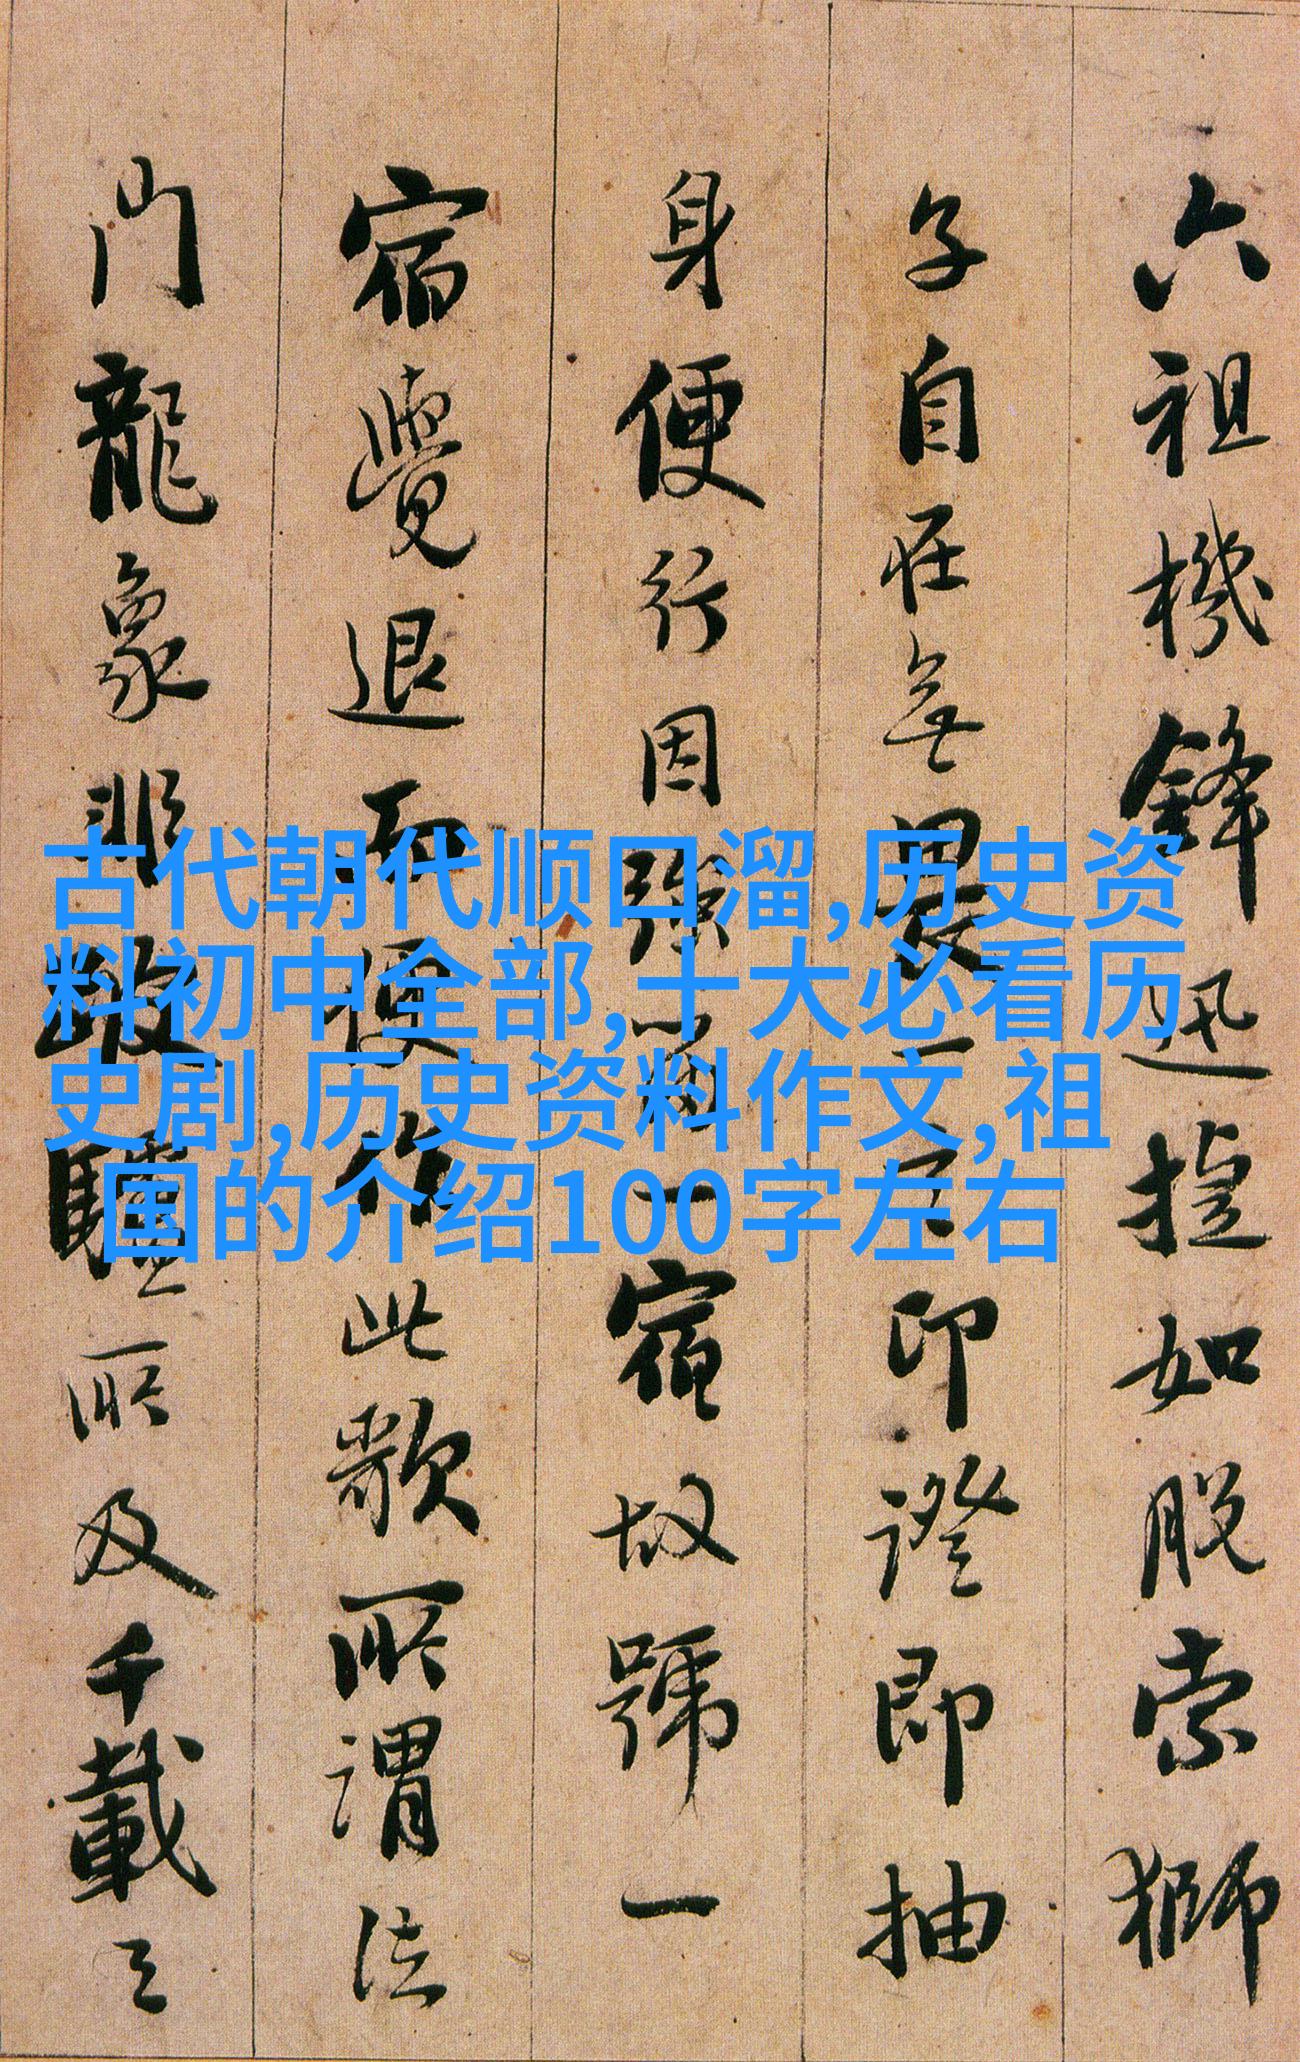 六祖機鋒迅捷如脱索獅
子自在無畏一印證即抽
身便行因強留一宿故號一
宿覺退而便作此歌所謂法
門龍象非跛驢所及千載之
古代朝代顺口溜,历史资
料初中全部,十大必看历
史剧,历史资料作文,祖
国的介绍100字左右